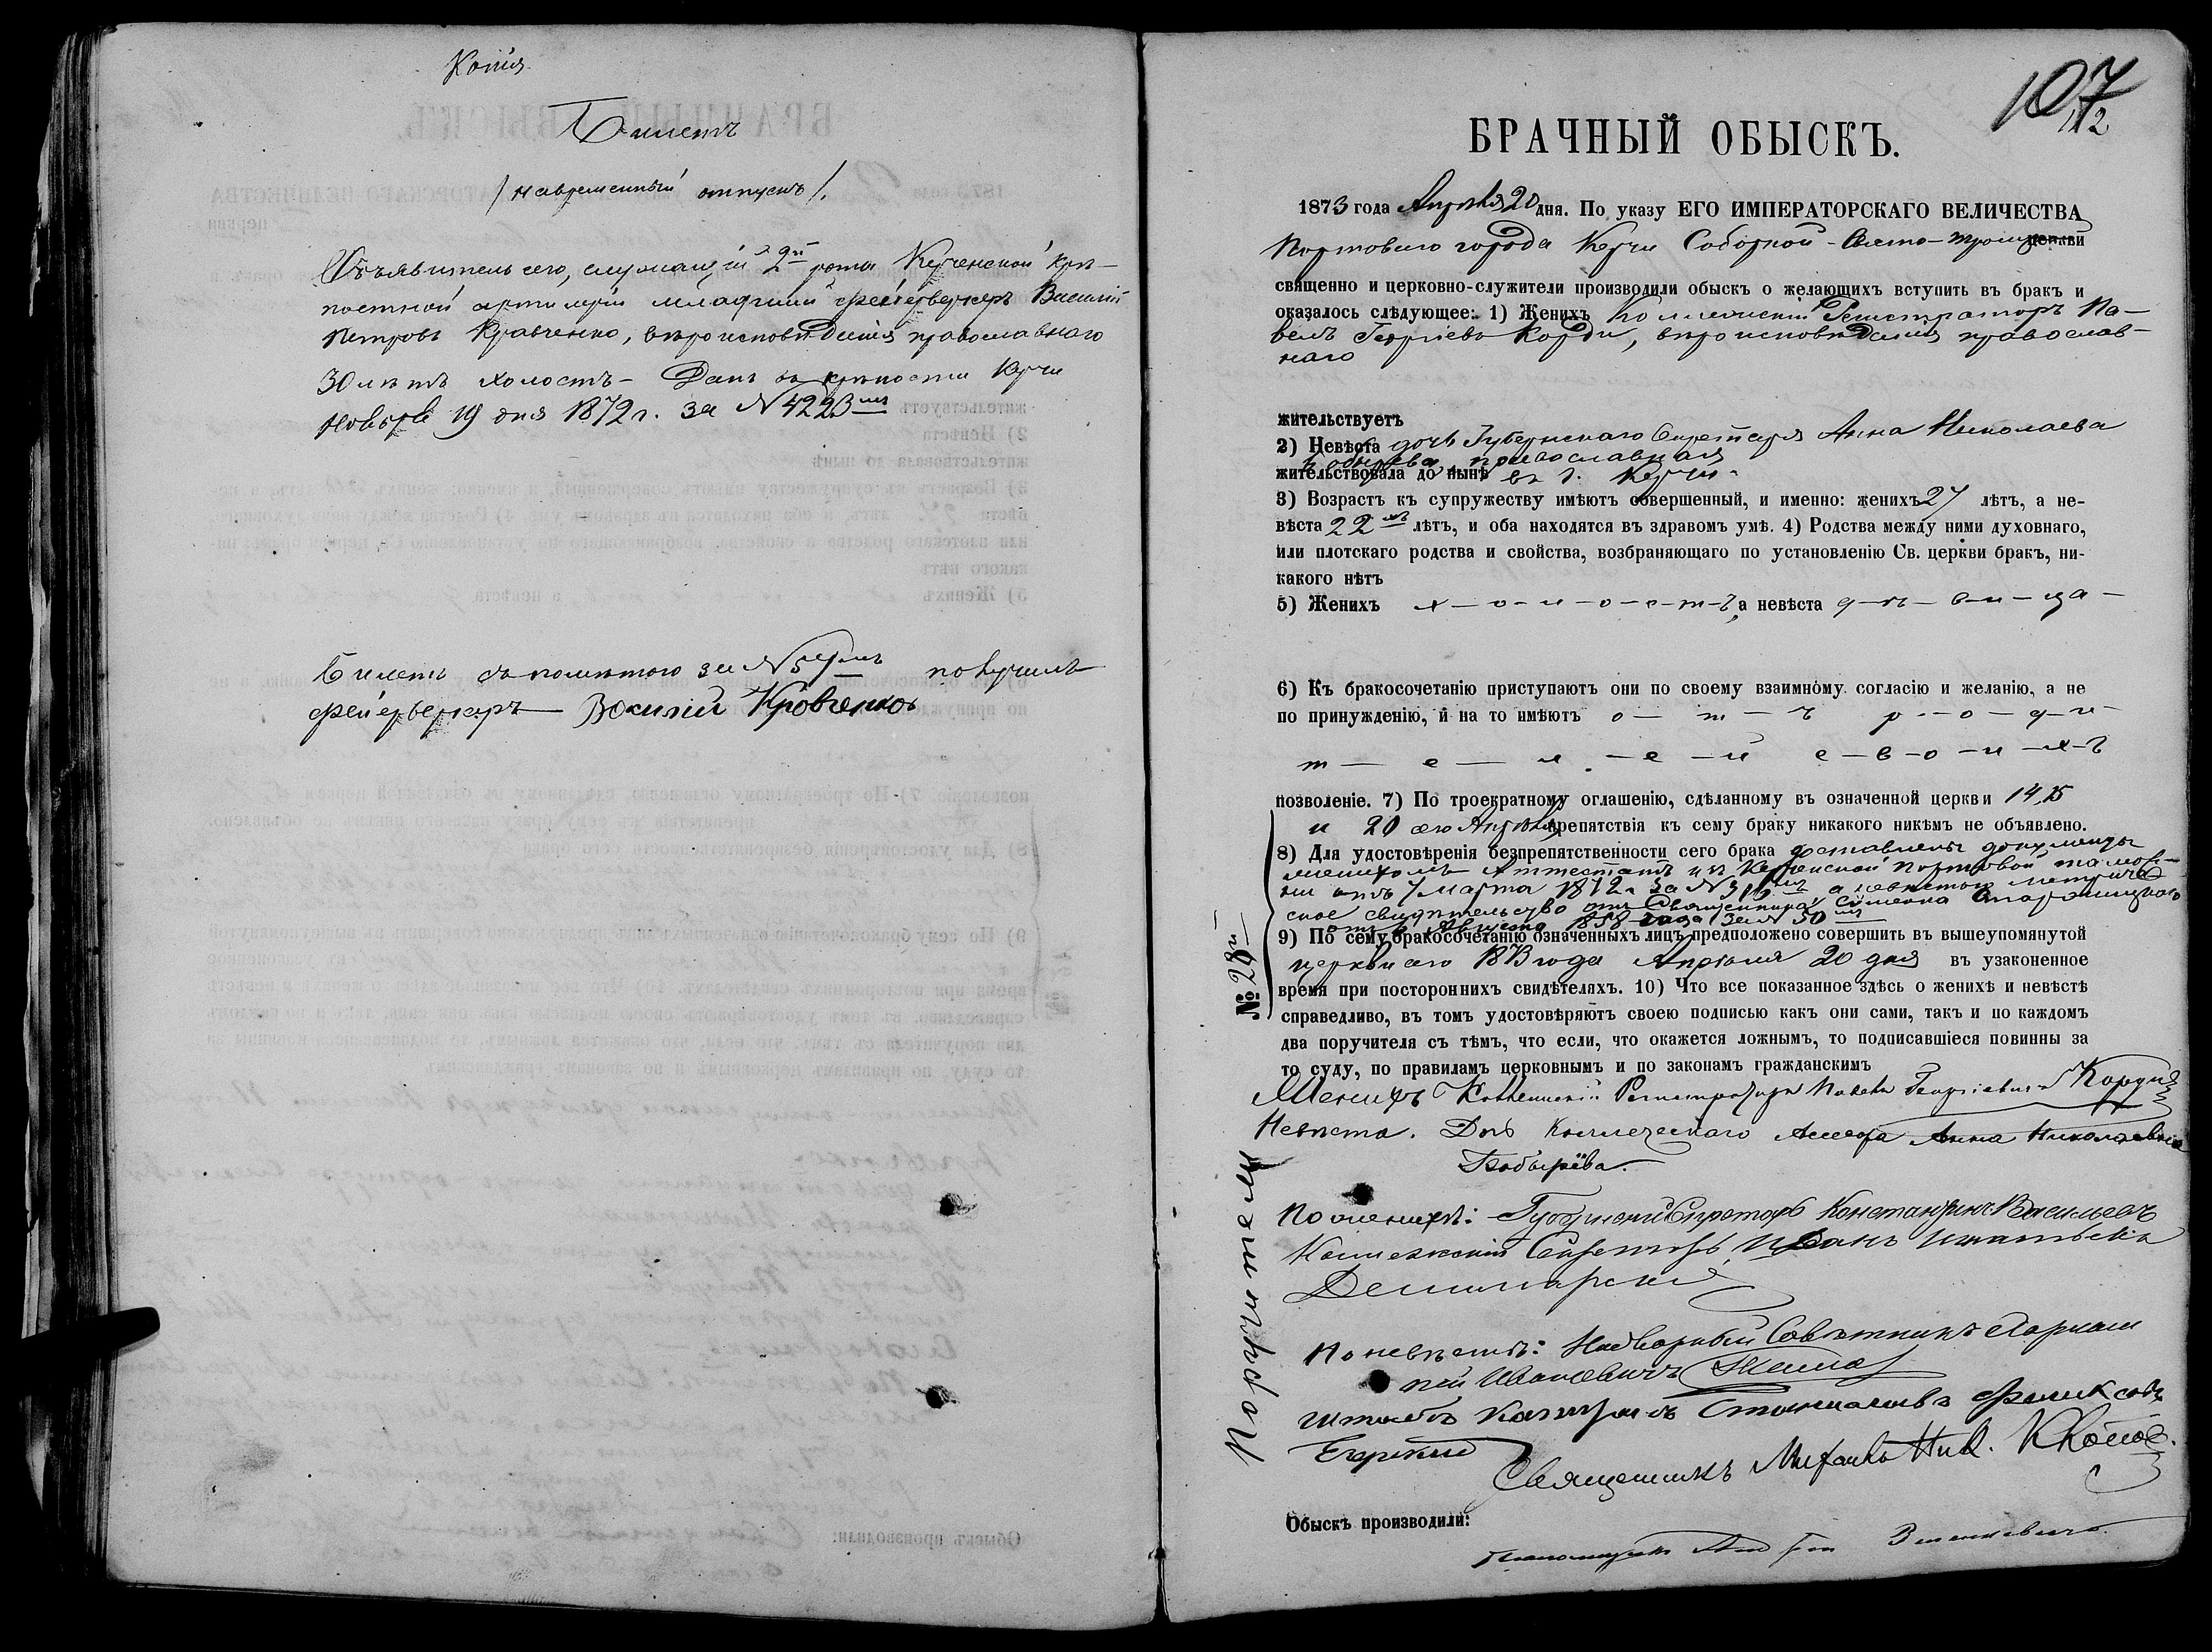 Копія
Билетъ
/ на временный отпускъ /.
Объявитель сего, служащій 2й роты Керченской крѣ-
постной артилеріи младшій фейерверкеръ Василій
Петровъ Кравченко, вѣроисповѣданія православнаго
30 лѣтъ холостъ – Данъ въ крѣпости Керчи
Ноября 19 дня 1872 г. за № 4223мъ
Билетъ съ помѣтою за № получилъ
фейерверкеръ Василій Кровченко
107
БРАЧНЫЙ ОБЫСКЪ.
1873 года Апрѣля 20 дня. По указу ЕГО ИМПЕРАТОРСКАГО ВЕЛИЧЕСТВА
Портоваго города Керчи Соборной - Свято-Троицкой церкви
священно и церковно-служители производили обыскъ о желающихъ вступить въ бракъ и
оказалось слѣдующее: 1) Женихъ Коллежскій Регистраторъ Па-
велъ Георгіевъ вѣроисповѣданія православ-
наго
жительствуетъ
2) Невѣста дочь Губернскаго Секретаря Анна Николаева
Бобырева, православная
жительствовала до нынѣ въ г. Керчи -
3) Возрастъ къ супружеству имѣютъ совершенный, и именно: женихъ 27 лѣтъ, а не-
вѣста 22 лѣтъ, и оба находятся въ здравомъ умѣ. 4) Родства между ними духовнаго,
или плотскаго родства и свойства, возбраняющаго по установленію Св. церкви бракъ, ни-
какого нѣтъ
5) Женихъ х-о-л-о-с-т-ъ, а невѣста д-ѣ-в-и-ца-
6) Къ бракосочетанію приступаютъ они по своему взаимному согласію и желанію, а не
по принужденію, и на то имѣютъ о-т-ъ р-о-д-и-
т-е-л-е-й с-в-о-и-х-ъ
позволеніе. 7) По троекратному оглашенію, сдѣланному въ означенной церкви 14, 15
и 20 сего Апрѣля препятствія къ сему браку никакого никѣмъ не объявлено.
8) Для удостовѣренія безпрепятственности сего брака доставлены документы
женихомъ Аттестатъ изъ Керченской портовой тамож-
ни отъ 7 марта 1872 г. за № а невѣстою метриче-
ское свидѣтельство отъ Священника Симеона
Августа 1858 года за № 50
9) По сему бракосочетанію означенныхъ лицъ предположено совершить въ вышеупомянутой
церкви сего 1873 года Апрѣля 20 дня въ узаконенное
время при постороннихъ свидѣтеляхъ. 10) Что все показанное здѣсь о женихѣ и невѣстѣ
справедливо, въ томъ удостовѣряютъ своею подписью какъ они сами, такъ и по каждомъ
два поручителя съ тѣмъ, что если, что окажется ложнымъ, то подписавшіеся повинны за
то суду, по правиламъ церковнымъ и по законамъ гражданскимъ
Женихъ Коллежскій Регистраторъ Павелъ Георгіевичъ
Невѣста. Дочь Коллежскаго Анна Николаевна
Бобырёва.
По женихѣ: Губернскій Секретарь Константинъ Васильевъ
Коллежскій Секретарь Иванъ Игнатьевъ
По невѣстѣ: Надворный Совѣтникъ
Ивановичъ
Штабсъ Капитанъ Станиславъ
Священникъ Михаилъ
Обыскъ производили:
№